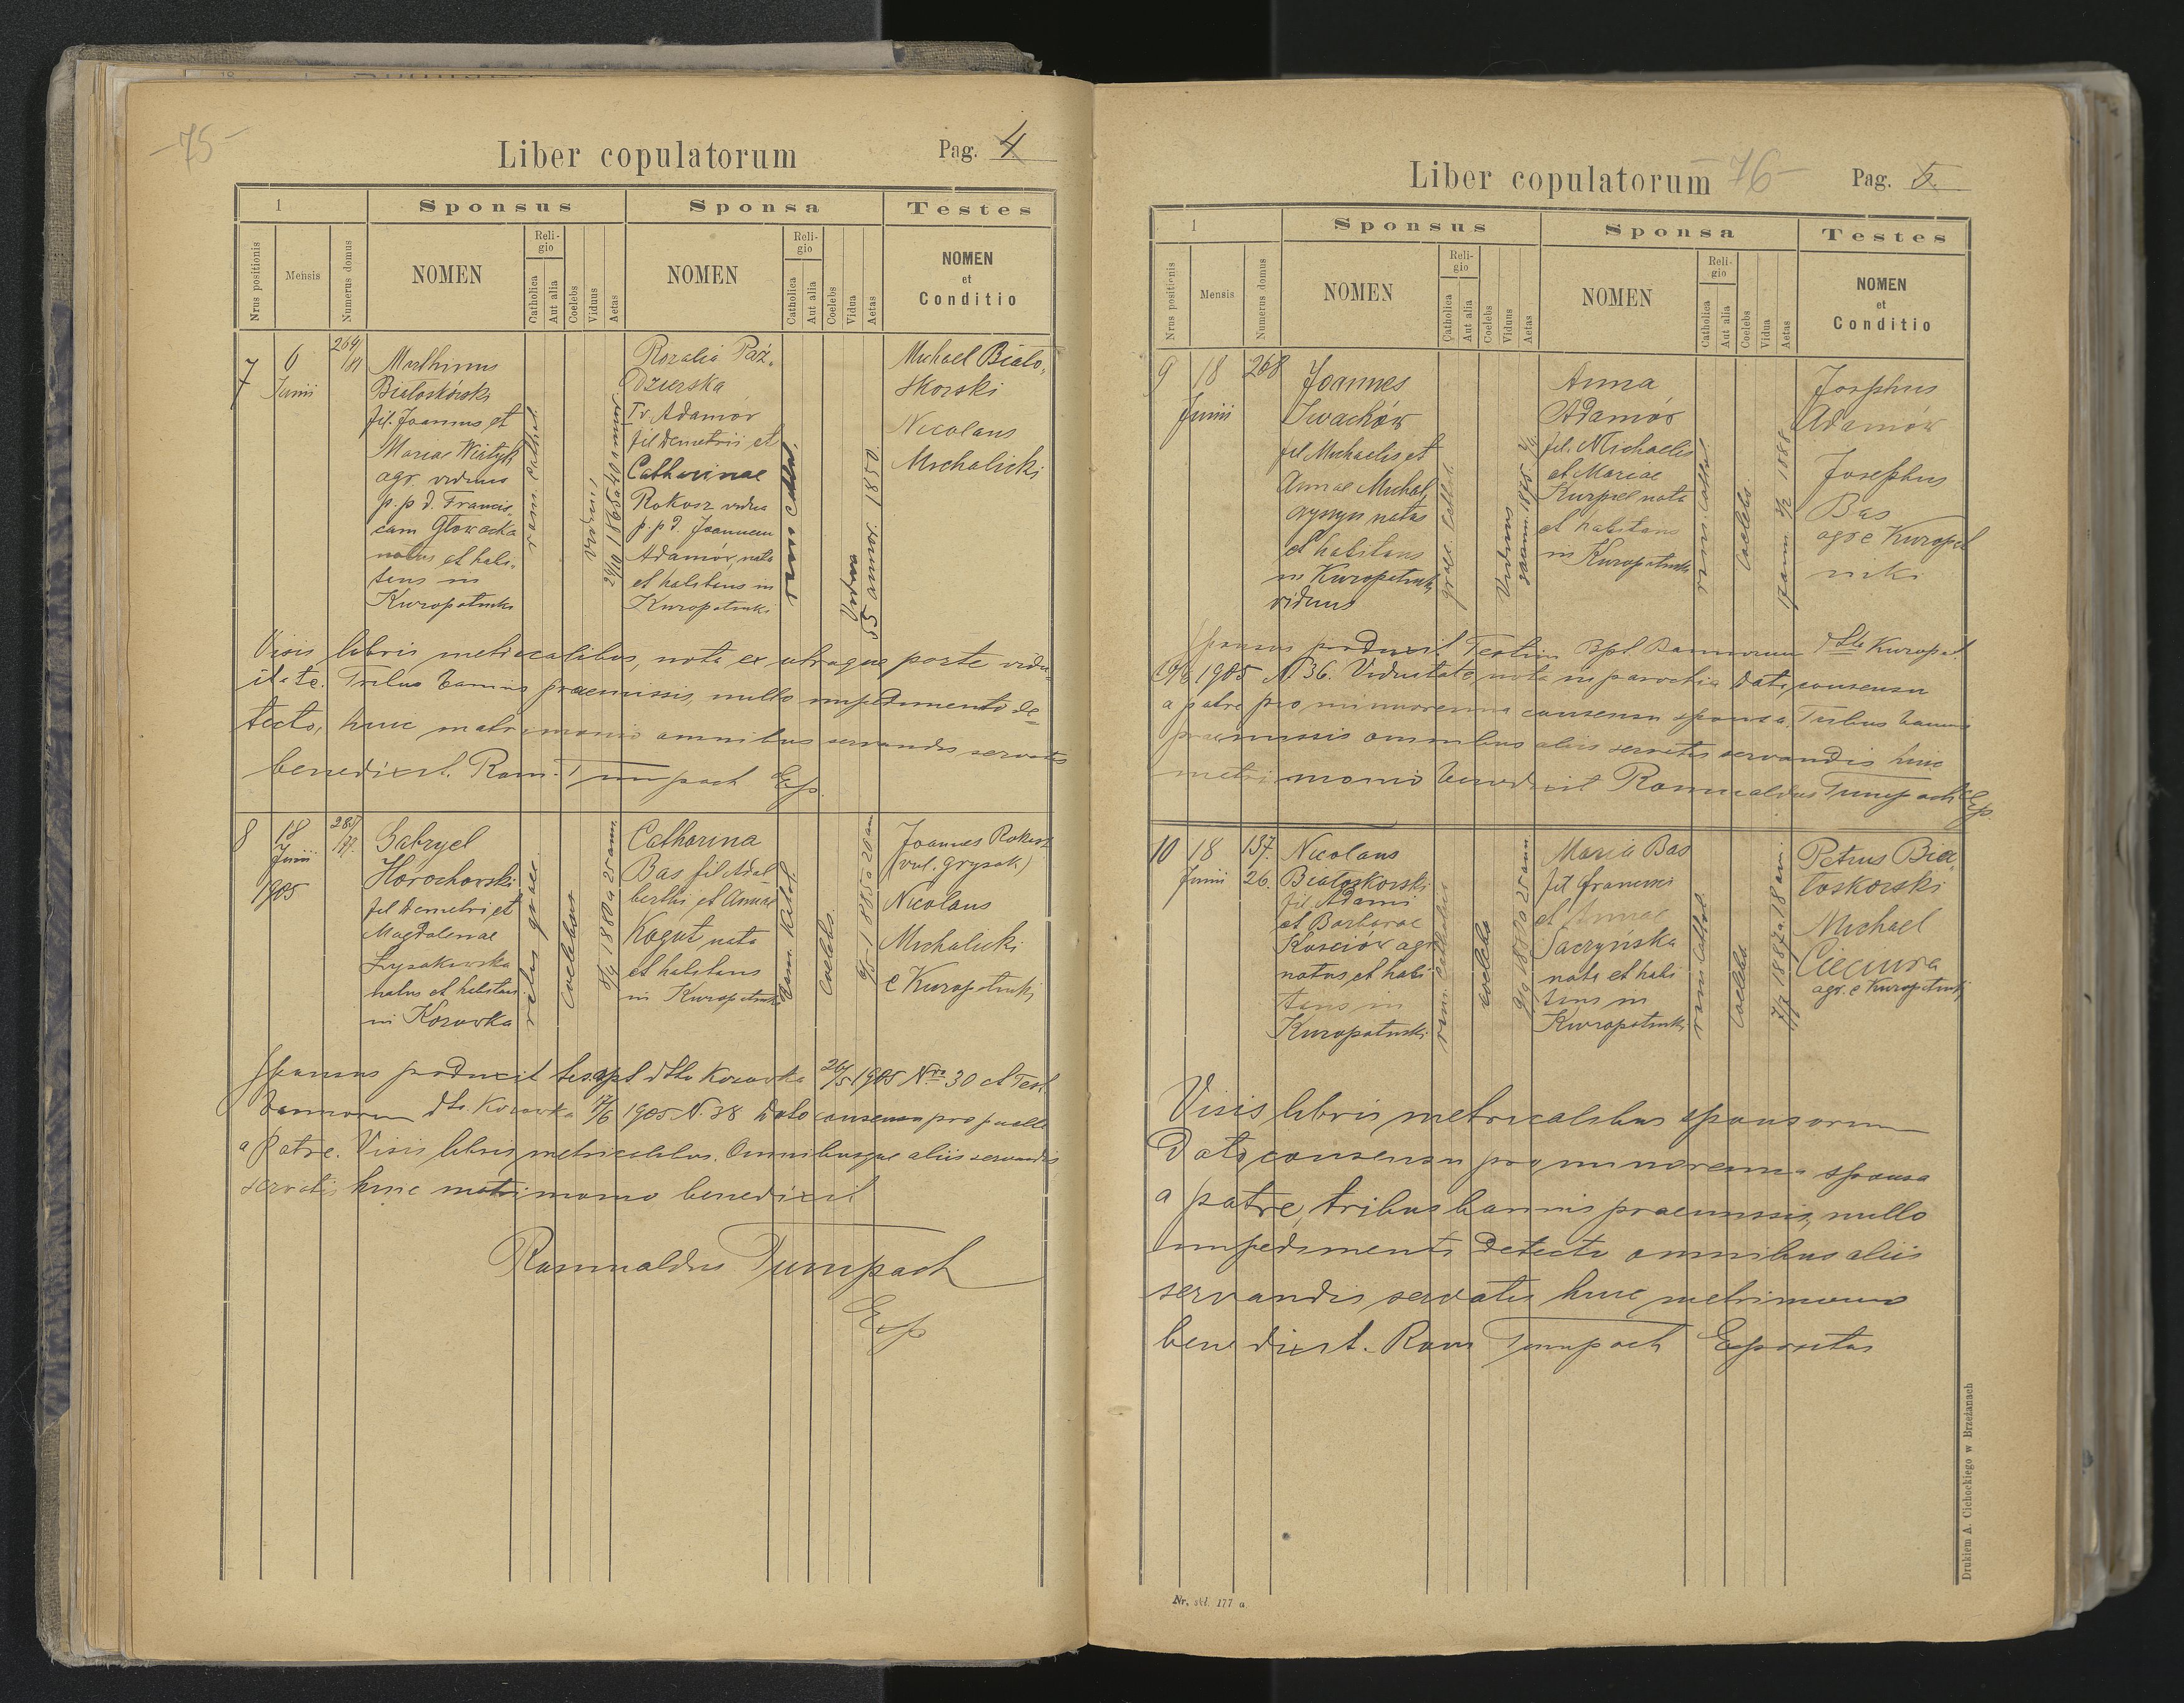 -75-
Liber copulatorum
Pag. 4
1
Sponsus
Sponsa
Testes
Nrus positionis
Mensis
Numerus domus
NOMEN
Religio
Catholica
Aut alia
Coelebs
Viduus
Aetas
NOMEN
Religio
Catholica
Aut alia
Coelebs
Vidua
Aetas
NOMEN
et
Conditio
7
6
Junii
264
Białoskórski
fil. Joannis et
Mariae
agr. viduus
p.p d. Francis-
cam Głowacka
natus et habi-
tans in
Kuropatniki
rom. cathol.
viduus
Rozalia Paź-
dzierska
Iv. Adamów
fil Demetrii et
Catharinae
Rokosz vidua
p.p d. Joannem
Adamów, nata
et habitans in
Kuropatniki
rom cathol.
Vidua
55 annor. 1850
Michael Biało-
skorski
Nicolaus
Michalicki
Visis libris metricalibus, nota ex utraque parte vidu-
itate. Tribus bannis praemissis, nullo impedimento de-
tecto, huic matrimonio omnibus servandis servatis
benedixit. Rom. Tumpach Exp.
8
18
Junii
1905
Gabryel
Horochowski
fil Demetri et
Magdalenae
Łysakowska
natus et habitans
in Kozowka
ritus graec.
coelebs
1880 a 25 ann.
Catharina
Bas fil Adal
berthi et Annae
Kogut nata
et habitans
in Kuropatniki
rom. kathol.
coelebs
1885 a 20 an
Joannes Rokosz
(vul. Grysak)
Nicolaus
Michalicki
e Kuropatniki
Sponsus produxit tes. bpt dtto Kozowka 26/5 1905 Nro 30 et Test.
bannorum dto. Kozowka 17/6 1905 N. 38 Dato consensu pro puella
a patre. Visis libris metricalibus. Omnibusque aliis servandis
servatis huic matrimonio benedixit
Romualdus Tumpach
Exp
Liber copulatorum
-76-
Pag. 5.
1
Sponsus
Sponsa
Testes
Nrus positionis
Mensis
Numerus domus
NOMEN
Religio
Catholica
Aut alia
Coelebs
Viduus
Aetas
NOMEN
Religio
Catholica
Aut alia
Coelebs
Vidua
Aetas
NOMEN
et
Conditio
9
18
Junii
268
Joannes
Iwachów
fil Michaelis et
Annae
natus
et habitans
in Kuropatniki
viduus
graec. cathol.
Viduus
Anna
Adamów
fil. Michaelis
et Mariae
Kurpiel nata
et habitans
in Kuropatniki
rom. cathol.
coelebs
17 ann. 1888
Josephus
Adamów
Josephus
Bas
agr e Kuropat
niki
Sponsus produxit Testim Bpt. Bannorum dtto Kuropat.
1905 N 36. Viduitate nota in parochia dato consensu
a patre pro minorenna consensu sponsa. Tribus bannis
praemissis omnibus aliis servatis servandis huic
matrimonio benedixit Romualdus Tumpach Exp.
10
18
Junii
137.
26.
Nicolaus
Białoskorski
fil. Adami
et Barbarae
Kościów agr
natus et habi
tans in
Kuropatniki
rom. catholic
coelebs
1880 a 25 ann
Maria Bas
fil Francisci
et Annae
Saczyńska
nata et habi
tans in
Kuropatniki
rom cathol.
coelebs
1887 a 18 an.
Petrus Bia-
łoskorski
Michael
Cieciura
agr. e Kuropatniki
Visis libris metricalibus sponsorum
Dato consensu pro minorenna sponsa
a patre, tribus bannis praemissis, nullo
impedimento detecto omnibus aliis
servandis servatis huic matrimonio
benedixit. Rom Tumpach Expositus
Nr. skł. 177 a
Drukiem A. Cichockiego w Brzeżanach